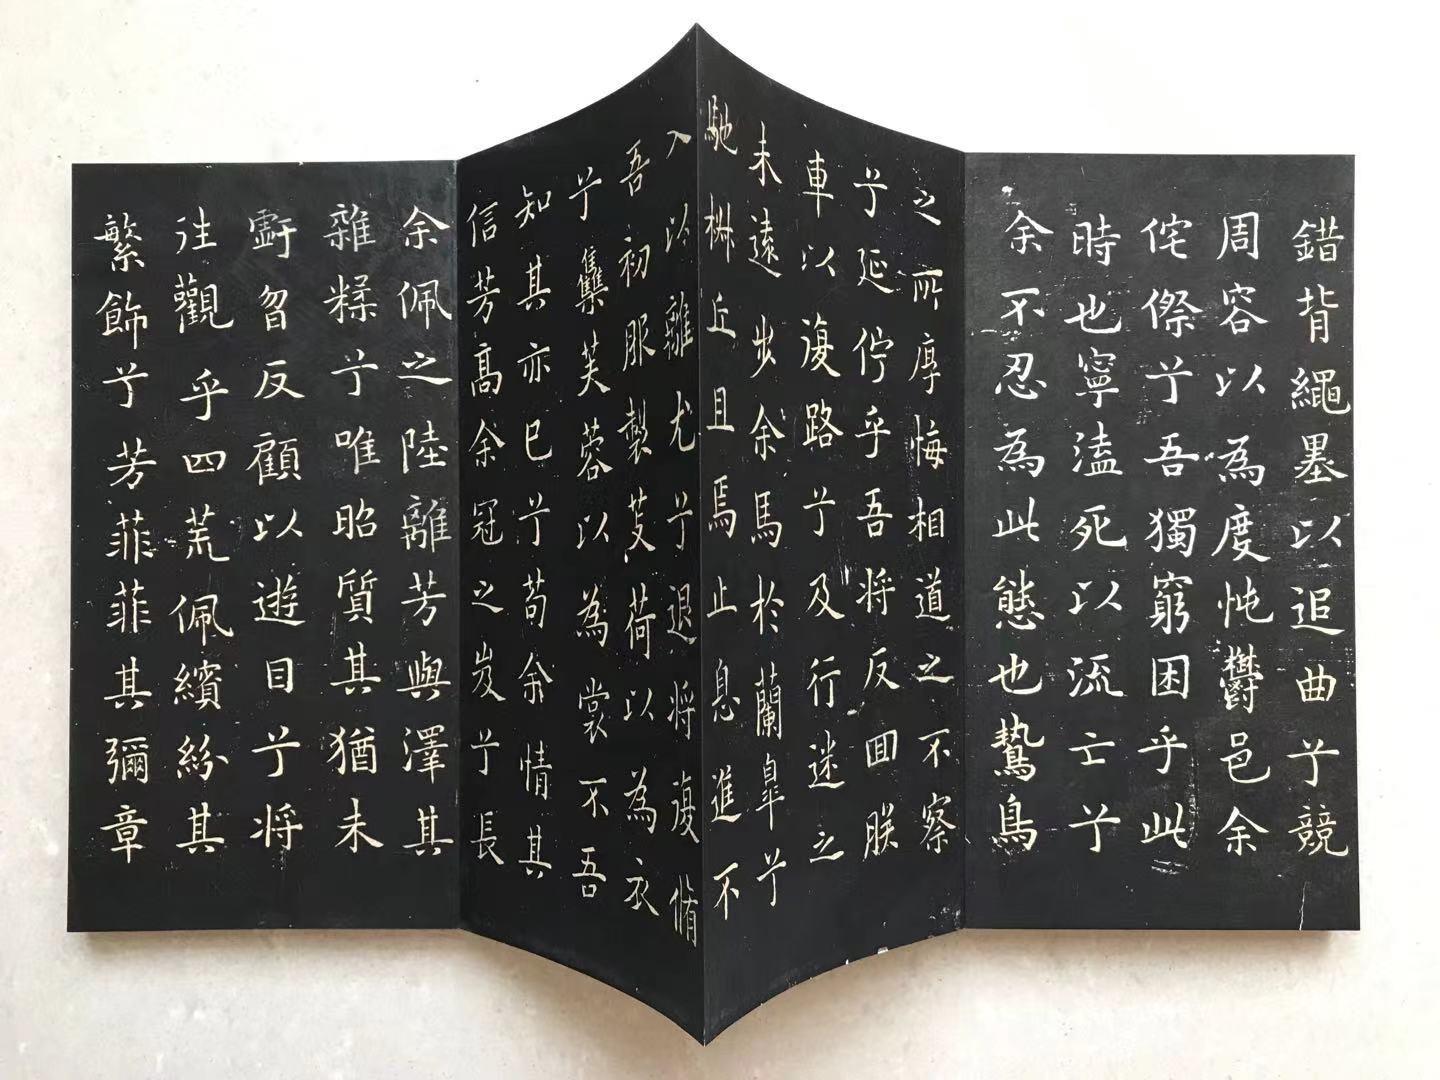 錯背繩墨以追曲兮競
周容以為度忳鬱邑余
侘傺兮吾獨窮困乎此
時也寧溘死以流亡兮
余不忍為此態也鷙鳥
之所厚悔相道之不察
兮延佇乎吾將反囬朕
車以復路兮及行迷之
未遠步余馬於蘭皋兮
馳椒丘且焉止息進不
入以離尤兮退將復脩
吾初服製芰荷以為衣
兮雧芙蓉以為裳不吾
知其亦已兮苟余情其
信芳高余冠之岌兮長
余佩之陸離芳與澤其
雜糅兮唯昭質其猶未
虧忽反顧以遊目兮將
往觀乎四荒佩繽紛其
繁飾兮芳菲菲其彌章